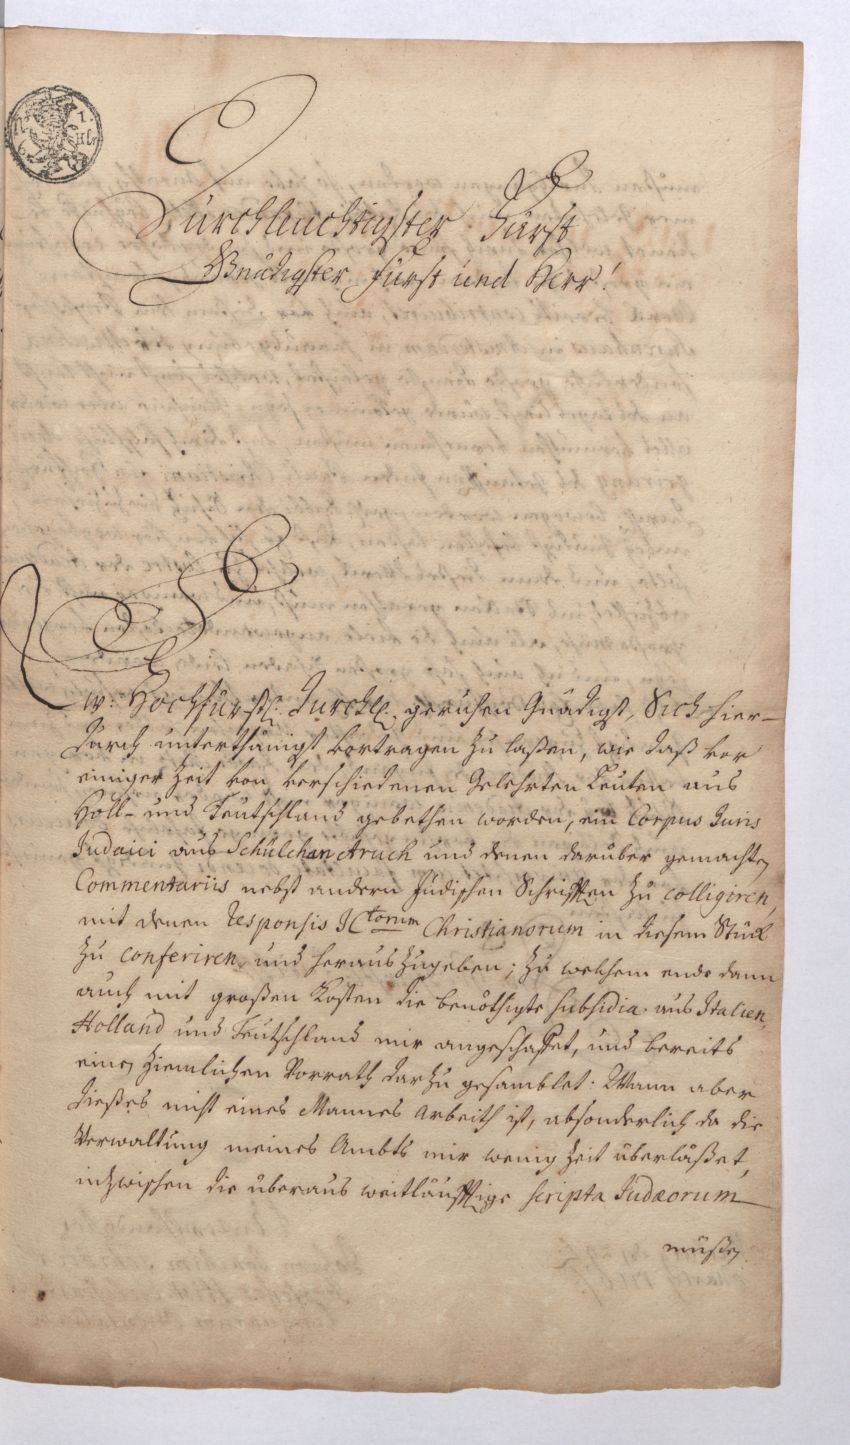 Durchleuchtigster Fürst
Gnädigster Fürst und Herr!
Ew: Hochfürstl: Durchl: geruhen Gnädigst, Sich hier-
durch unterthänigst vortragen zu laßen, wie daß vor
einiger Zeit von verschiedenen Gelehrten Leuten aus
Holl- und Teutschland gebethen worden, ein Corpus Juris
Judaici aus Schülchan Aruch und denen darüber gemachten
Commentariis nebst andern Jüdischen Schrifften zu colligiren,
mit denen Responsis JCtorum Christianorum in diesem Stück
zu conferiren, und herauszugeben; zu welchem ende dann
auch mit großen Kosten die benöthigte subsidia aus Italien,
Holland und Teutschland mir angeschaffet, und bereits
einen ziemlichen Vorrath darzu gesamblet. Wann aber
dießes nicht eines Mannes Arbeith ist, absonderlich da die
Verwaltung meines Ambts mir wenig Zeit überläßet,
inzwischen die überaus weitläufftige scripta Judæorum
müßen